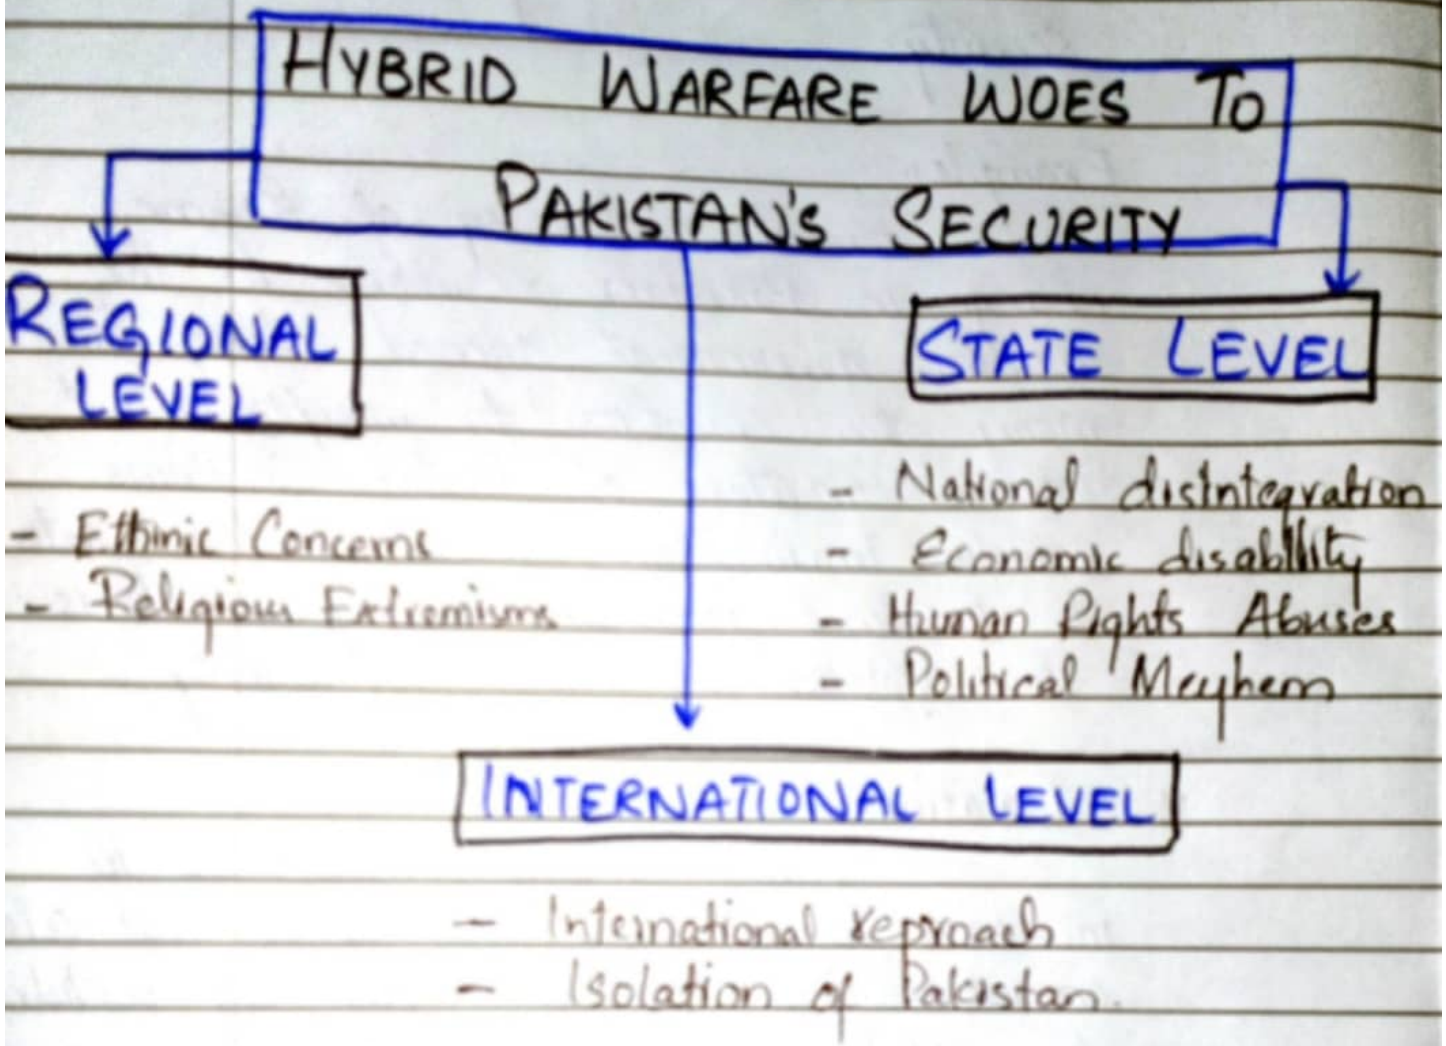 HYBRID WARFARE WOES TO
PAKISTAN'S SECURITY
REGIONAL
LEVEL
- Ethinic Concerns
- Religious Extremisms
STATE LEVEL
- National disintegration
- Economic disability
- Human Rights Abuses
- Political Meyhem
INTERNATIONAL LEVEL
- International reproach
- Isolation of Pakistan.